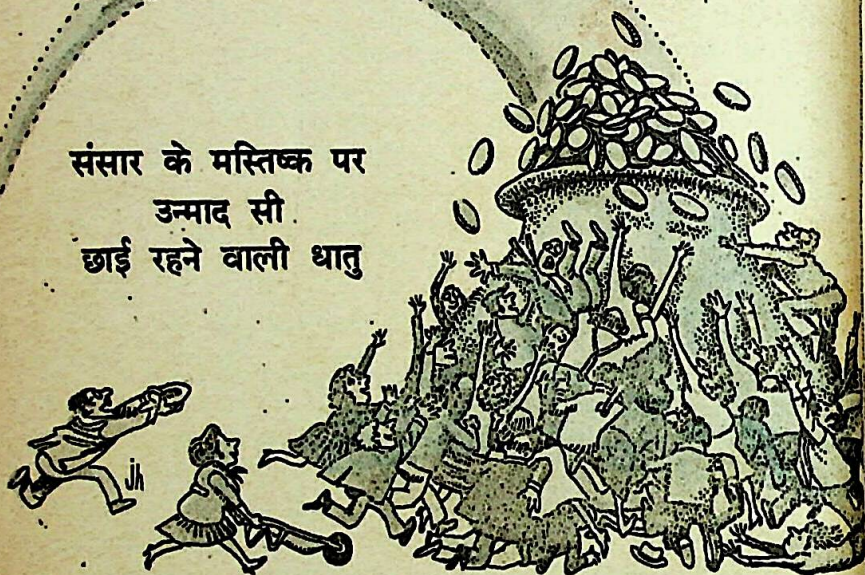 संसार के मस्तिष्क पर
उन्माद सी
छाई रहने वाली धातु
jh